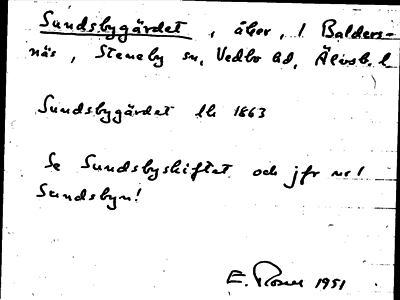 Sundsbygärdet, åker, / Balders-
näs, Steneby sn, Vedbo hd, Älvsb. l
Sundsbygärdet lh 1863
Se Sundsbyskiftet och jfr nr 1
Sundsbyn!
E. Rosen 1951